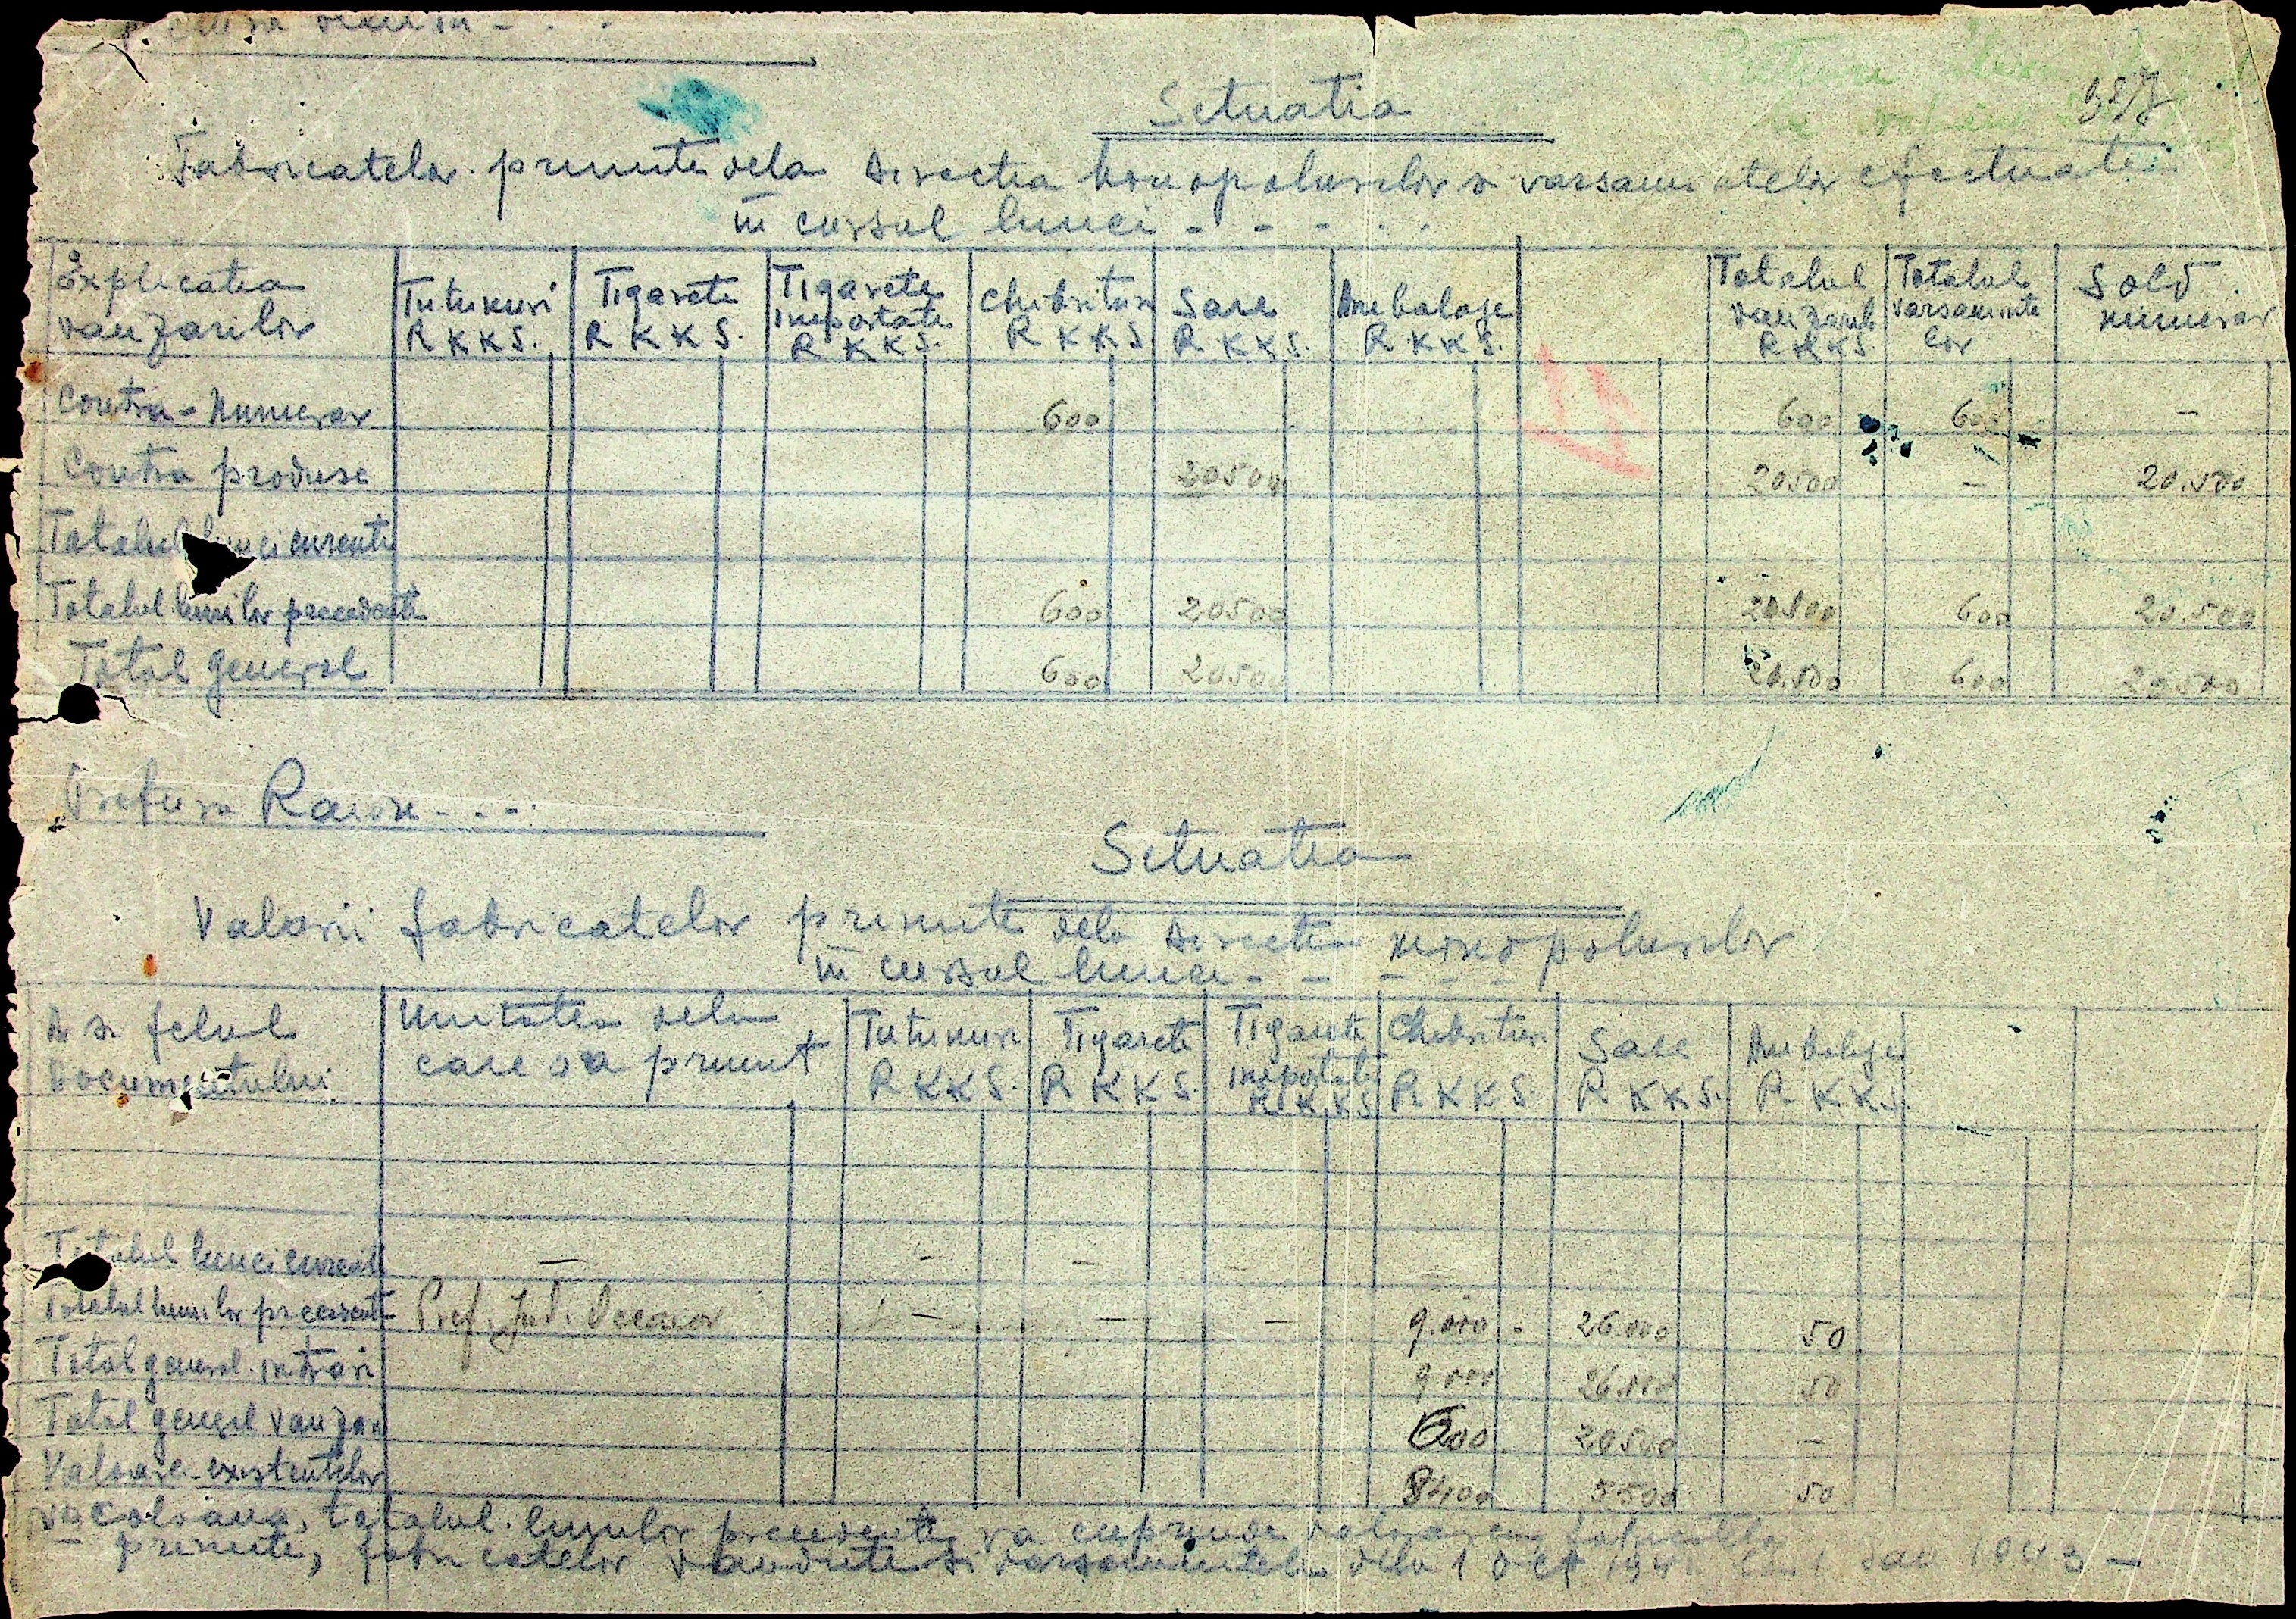 327
Situatia
Fabricatelor primite dela Directia Monopolurilor si varsamintelor efectuate
in cursul lunei - - - - -
Explicatia vanzarilor | Tutunuri R K K S. | Tigarete R K K S. | Tigarete importate R K K S. | Chibrituri R K K S | Sare R K K S. | Ambalaje R K K S. | | Totalul vanzaril R K K S | Totalul varsaminte lor | Sold numerar
Contra-Numerar 600 600 600 -
Contra produse 20500 20500 - 20.500
Totalul lunei curente
Totalul lunilor precedente 600 20500 20500 600 20.500
Total general 600 20500 20.500 600 20500
Prefura Raion - - -
Situatia
Valorii fabricatelor primite dela Directia monopolurilor
in cursul lunei - - - - -
N si felul documentului | Unitatea dela care s'a primit | Tutunuri R K K S. | Tigarete R K K S. | Tigarete importate R K K S | Chibrituri R K K S. | Sare R K K S. | Ambalaje R K K S.
Totalul lunei curent - - - - -
Totalul lunilor precedente Pref. Jud. - - - 9.000 - 26.000 50
Total general intrari 9000 26.000 50
Total general vanzari 600 20500 -
Valoarea existentelor 8400 5500 50
in coloana, totalul lunilor precedente va cuprinde valoarea
primite, fabricatelor vandute si varsamintele dela 1 Oct 194 1 Ian 1943 -